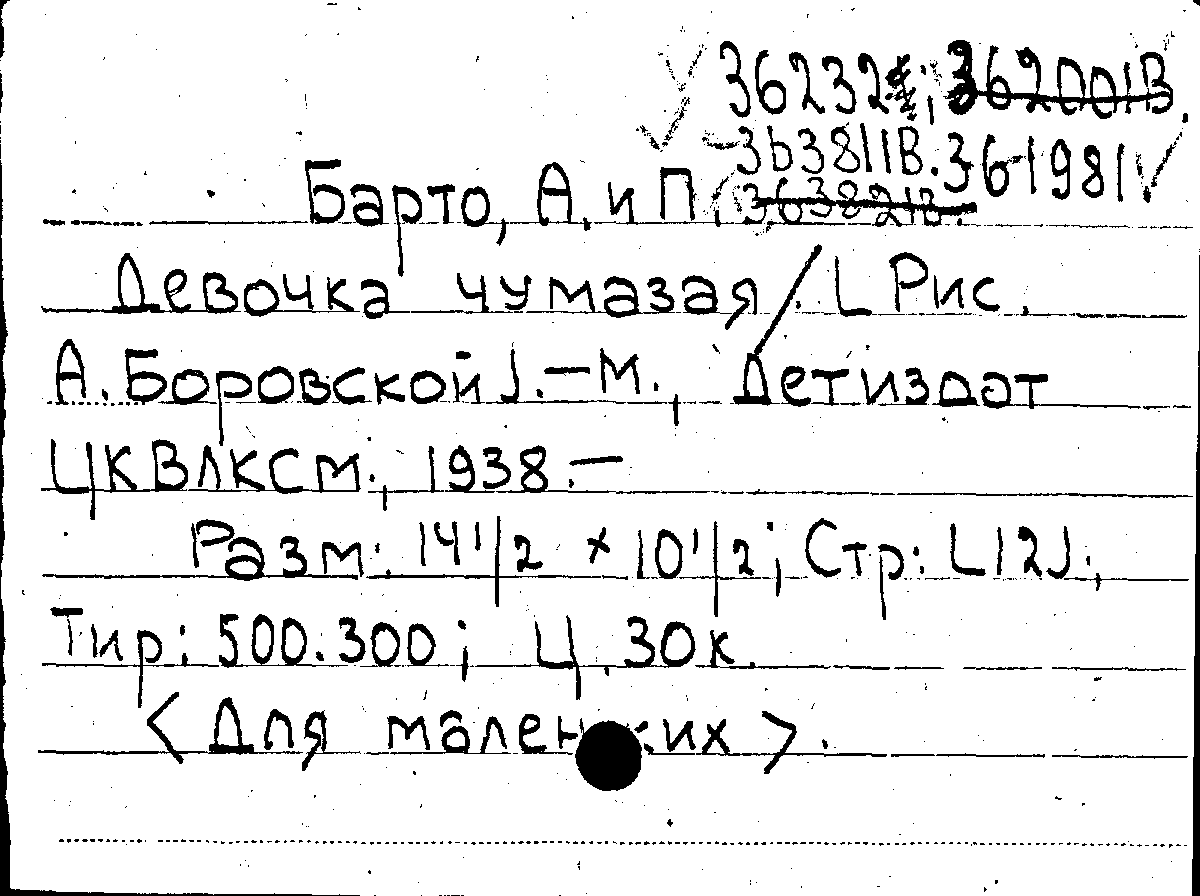 36232; 362001В.
363811В. 361981
Барто, А. и П. 363821В.
Девочка чумазая /. [Рис.
А. Боровской]. — М., Детиздат
ЦК ВЛКСМ., 1938. —
Разм: 14 1/2 х 10 1/2; Стр: [12].,
Тир: 500.300; Ц. 30 к.
<Для маленьких>.